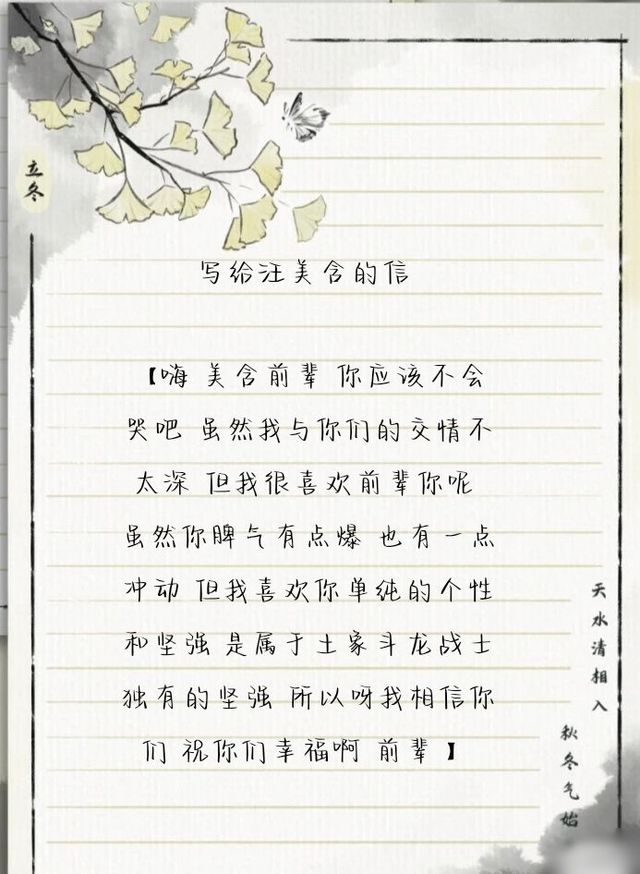 立冬
写给汪美含的信
【嗨 美含前辈 你应该不会
哭吧 虽然我与你们的交情不
太深 但我很喜欢前辈你呢
虽然你脾气有点爆 也有一点
冲动 但我喜欢你单纯的个性
和坚强 是属于土家斗龙战士
独有的坚强 所以呀我相信你
们 祝你们幸福啊 前辈 】
天水清相入
秋冬气始